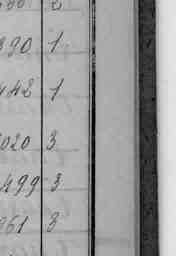 390 1
442 1
020 3
499 3
961 3